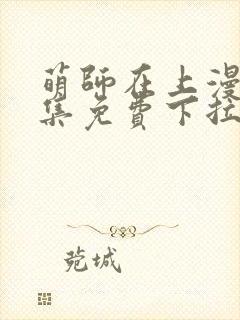 萌师在上漫
集免費下拉
菀城